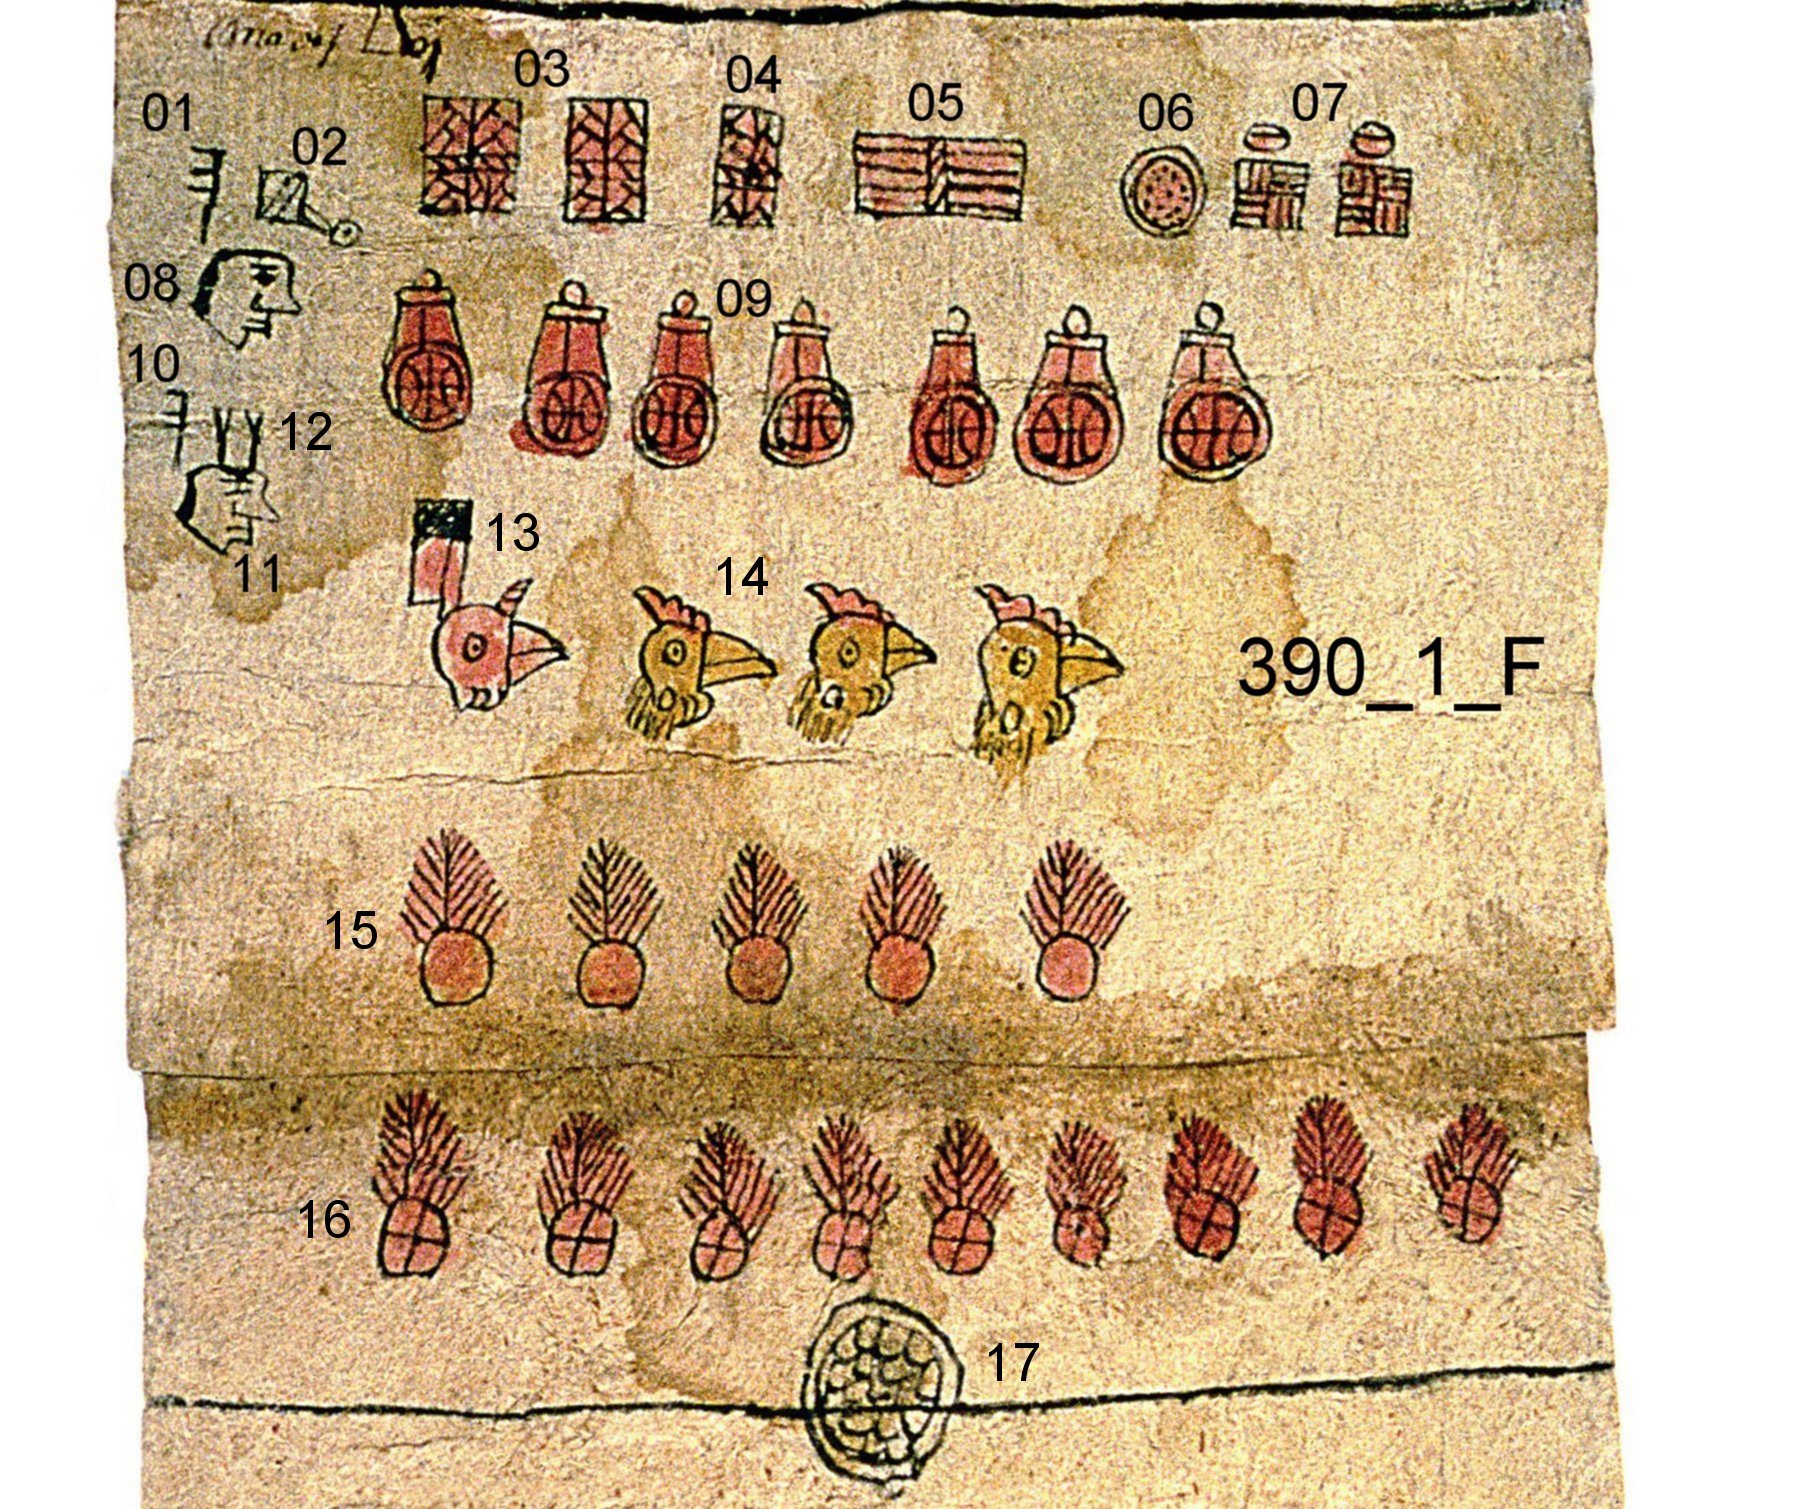 03
04
05
06
07
01
02
08
09
10
12
11
13
14
390_1_F
15
16
17